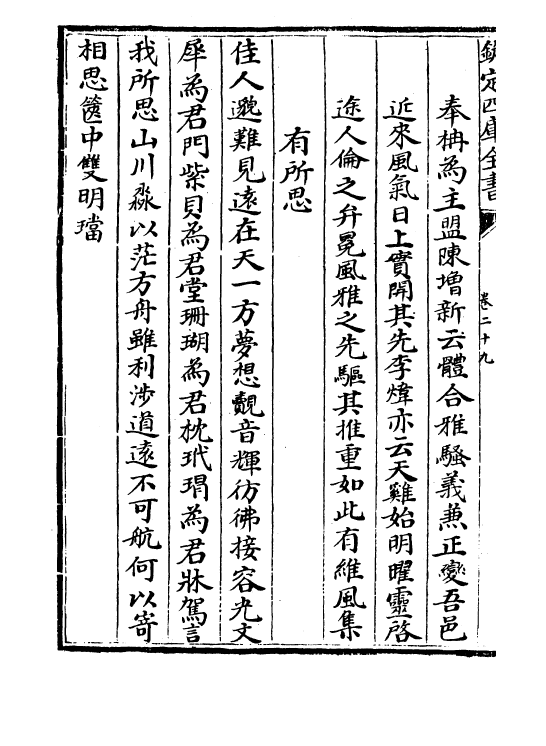 欽定四庫全書
卷二十九
奉枏為主盟陳增新云體合雅騷義兼正變吾邑
近來風氣日上實開其先李煒亦云天雞始明曜靈啓
途人倫之弁冕風雅之先驅其推重如此有維風集
有所思
佳人邈難見遠在天一方夢想覿音輝彷彿接容光文
犀為君門紫貝為君堂珊瑚為君枕玳瑁為君牀駕言
我所思山川淼以茫方舟雖利涉道遠不可航何以寄
相思篋中雙明璫